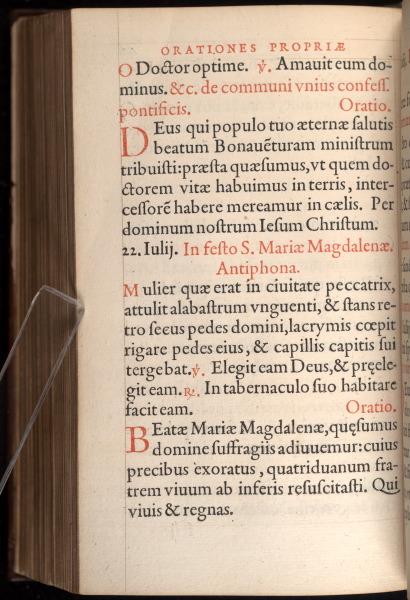 ORATIONES PROPRIÆ
O Doctor optime. ℣. Amauit eum do-
minus. &c. de communi vnius confess.
pontificis. Oratio.
DEus qui populo tuo æternæ salutis
beatum Bonauẽturam ministrum
tribuisti: præsta quæsumus, vt quem do-
ctorem vitæ habuimus in terris, inter-
cessorẽ habere mereamur in cælis. Per
dominum nostrum Iesum Christum.
22. Iulij. In festo S. Mariæ Magdalenæ.
Antiphona.
Mulier quæ erat in ciuitate peccatrix,
attulit alabastrum vnguenti, & stans re-
tro secus pedes domini, lacrymis cœpit
rigare pedes eius, & capillis capitis sui
tergebat. ℣. Elegit eam Deus, & pręele-
git eam. ℟. In tabernaculo suo habitare
facit eam. Oratio.
BEatæ Mariæ Magdalenæ, quęsumus
domine suffragiis adiuuemur: cuius
precibus exoratus, quatriduanum fra-
trem viuum ab inferis resuscitasti. Qui
viuis & regnas.